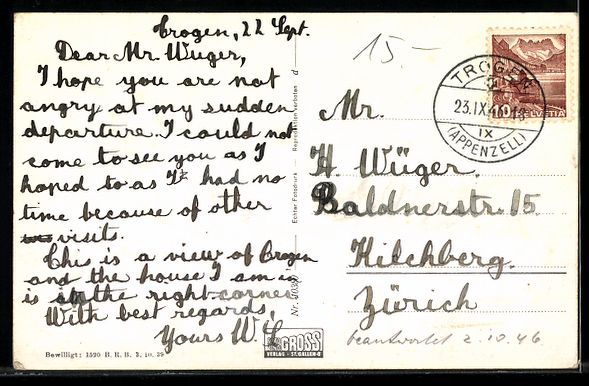 Trogen, 22 Sept.
Dear Mr. Wüger,
I hope you are not
angry at my sudden
departure. I could not
come to see you as I
hoped to as I had no
time because of other
visits.
This is a view of Trogen
and the house I am in
is at the right corner
With best regards,
Yours W.
15.-
TROGEN
23.IX.46
IX
(APPENZELL)
10
HELVETIA
Mr.
H. Wüger.
Baldnerstr. 15.
Kilchberg.
Zürich
beantwortet 2.10.46
Echter Fotodruck Reproduktion verboten
GROSS
VERLAG - ST. GALLEN-O
Bewilligt: 1520 B. R. B. 3. 10. 39